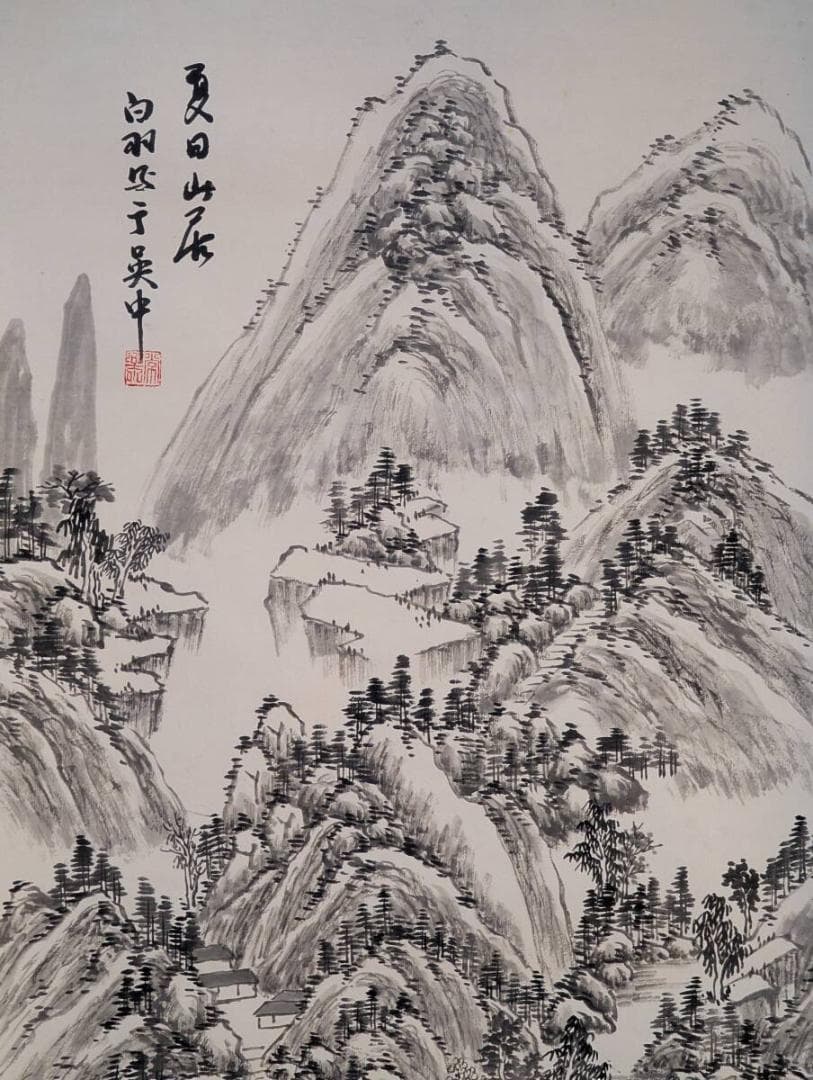 夏日山居
白羽写于吴中